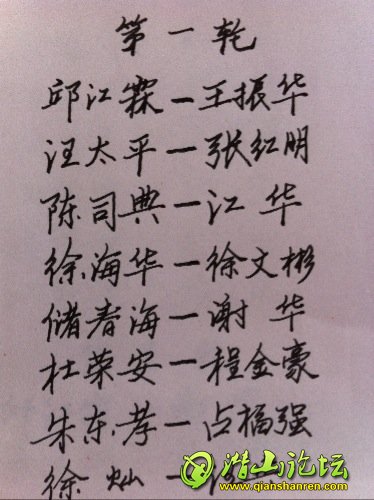 第一轮
邱江霖—王振华
汪太平—张红明
陈司典—江华
徐海华—徐文彬
储春海—谢华
杜荣安—程金豪
朱东孝—占福强
徐灿—
潜山论坛
www.qianshanren.com